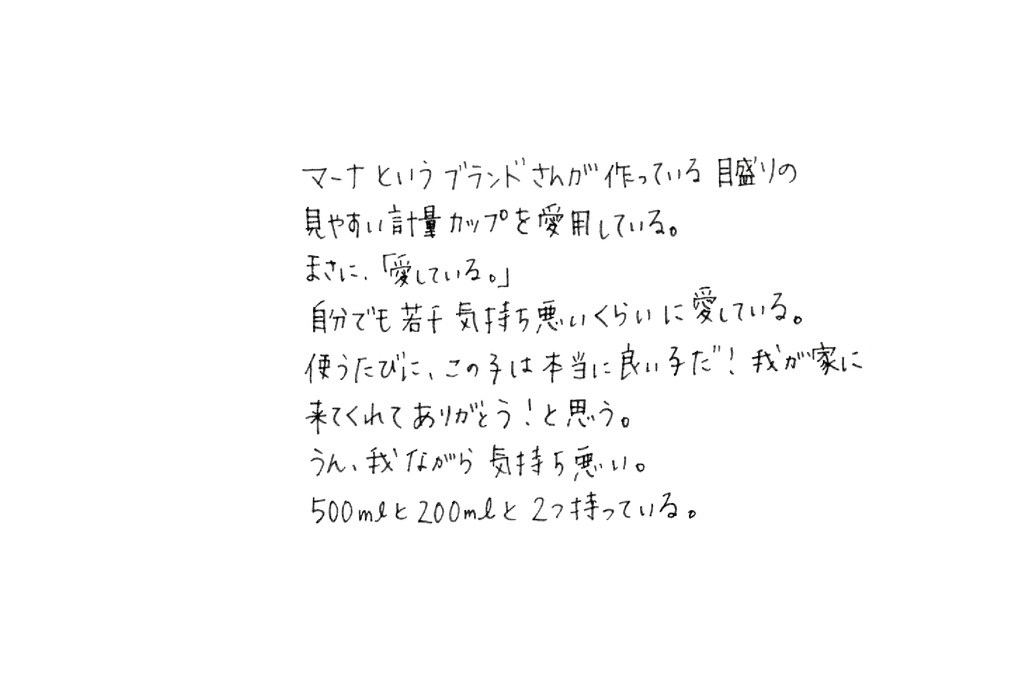 マーナというブランドさんが作っている目盛りの
見やすい計量カップを愛用している。
まさに、「愛している。」
自分でも若干気持ち悪いくらいに愛している。
使うたびに、この子は本当に良い子だ！我が家に
来てくれてありがとう！と思う。
うん、我ながら気持ち悪い。
500mlと200mlと2つ持っている。